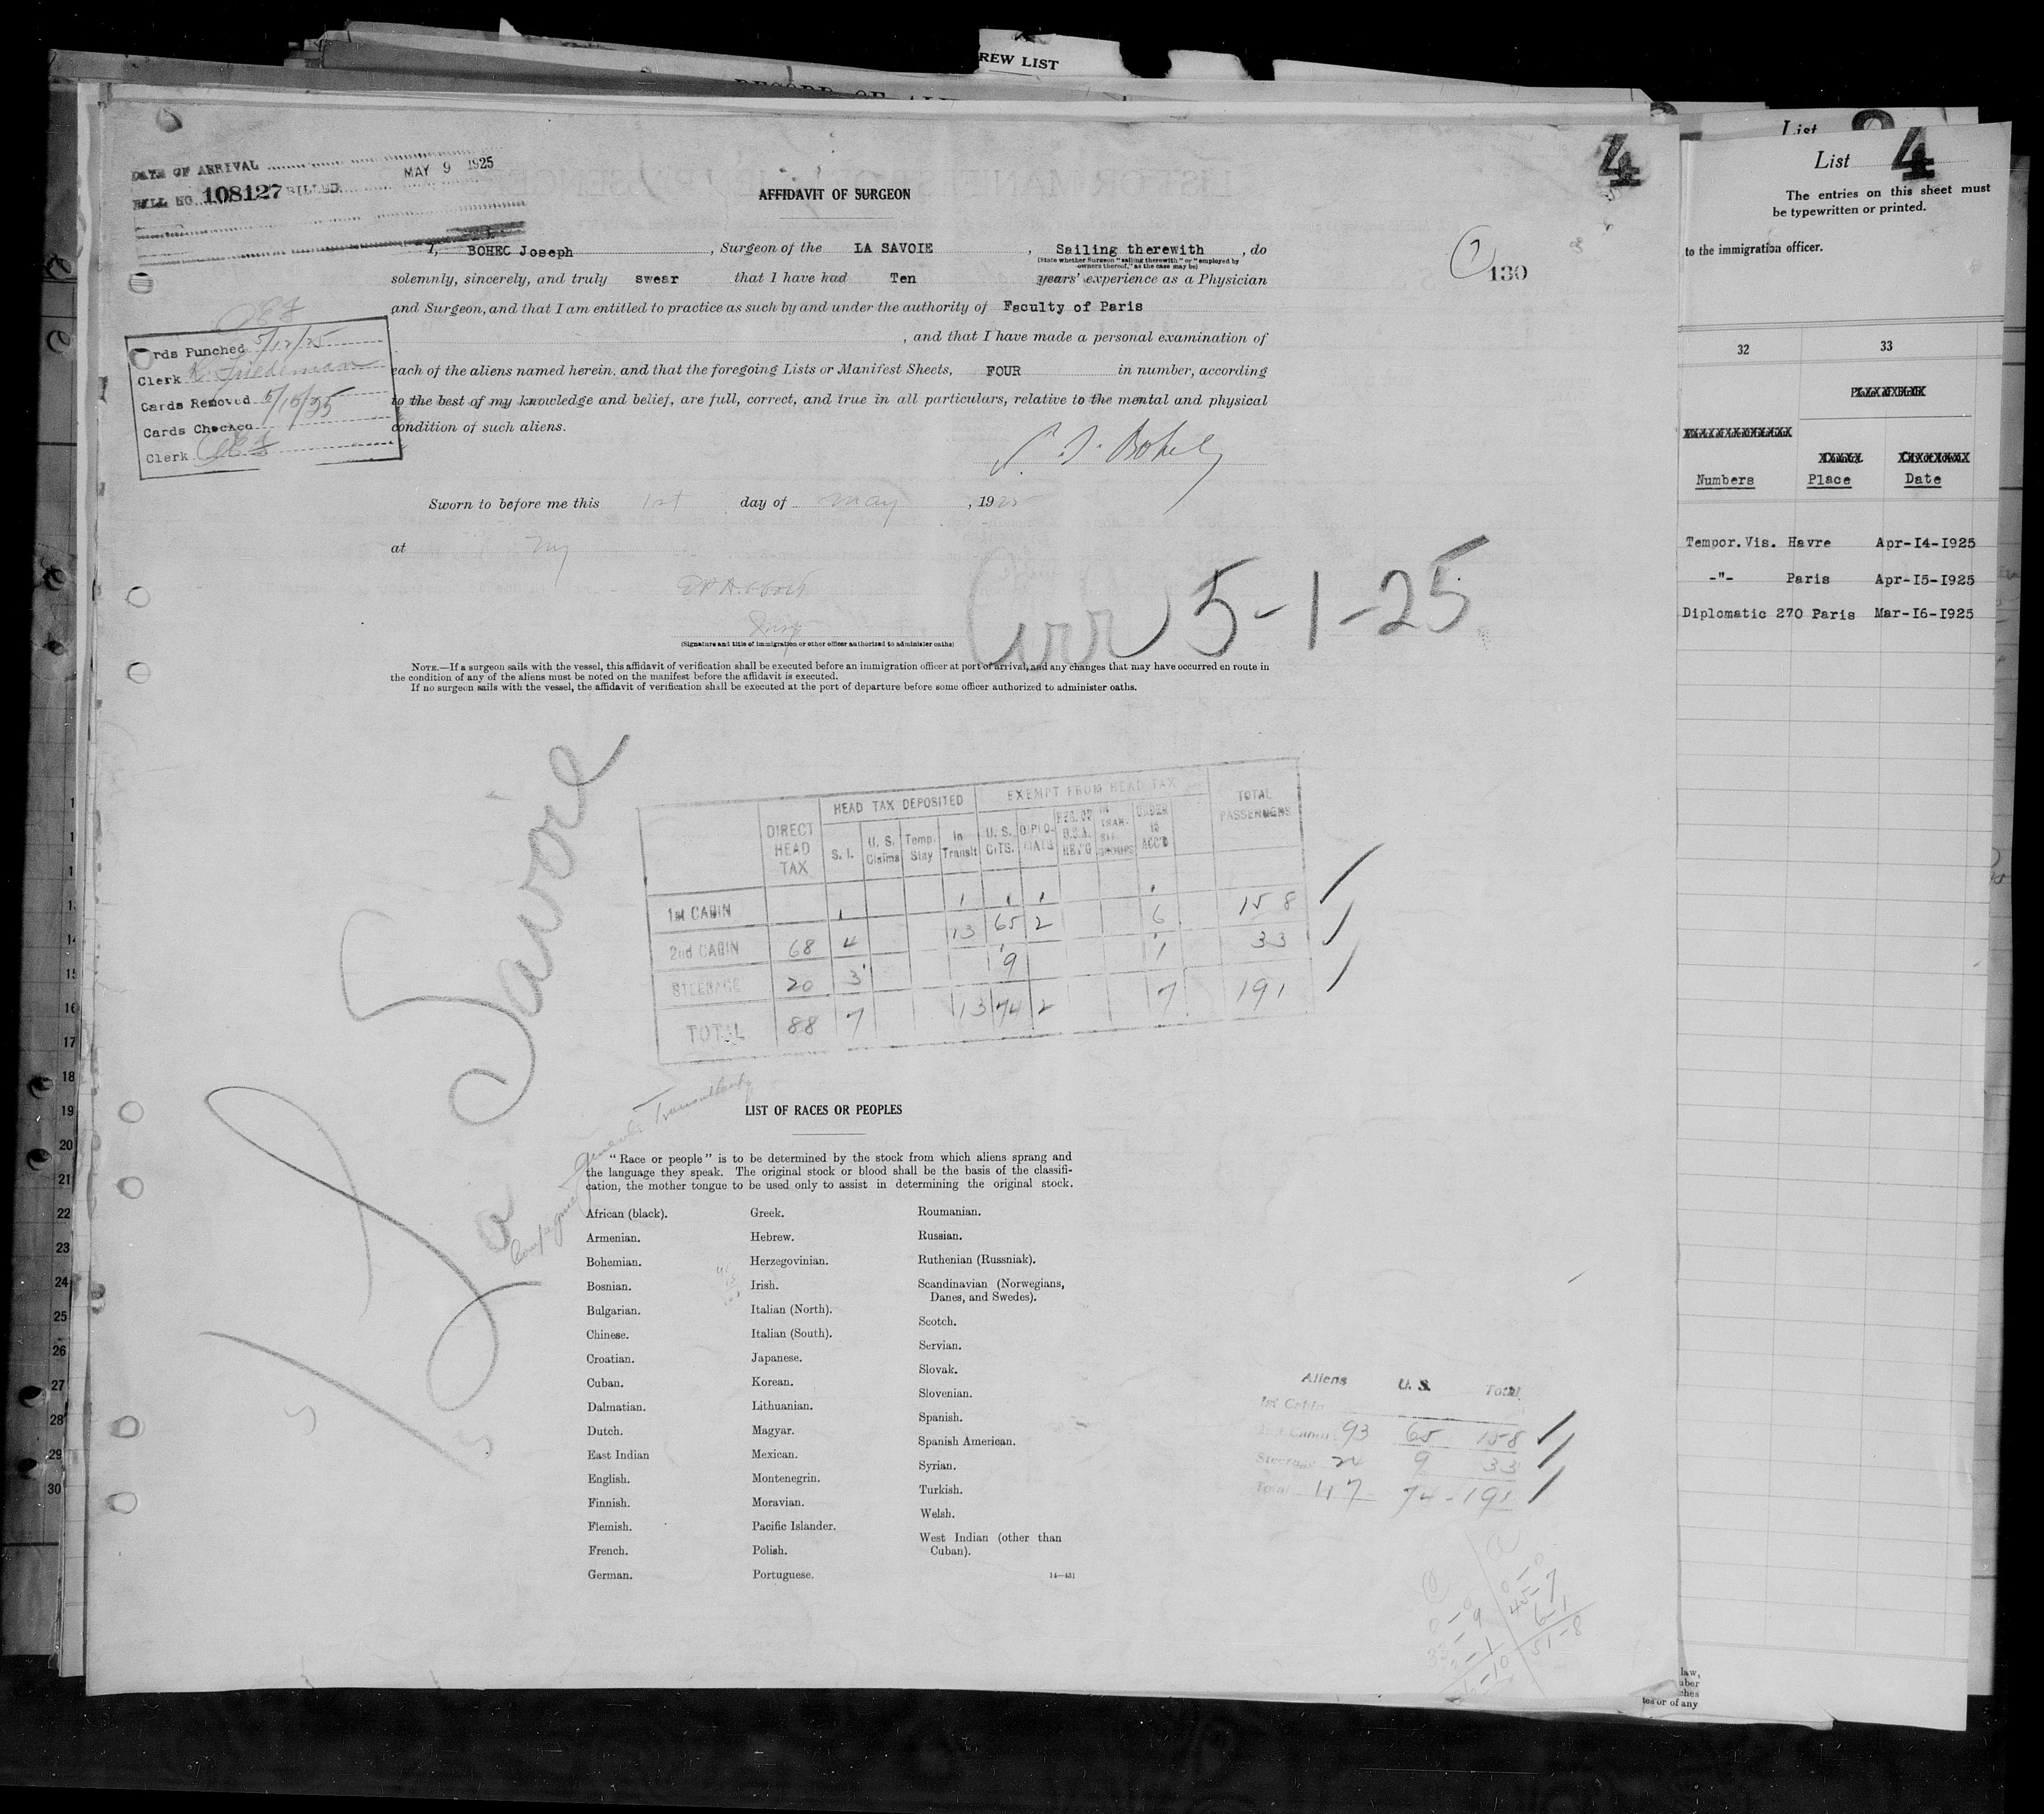 REW LIST
DATE OF ARRIVAL MAY 9 1925
BILL NO. 108127 BILLED
4
AFFIDAVIT OF SURGEON
I, BOHEC Joseph, Surgeon of the LA SAVOIE, Sailing therewith, do
(State whether Surgeon "sailing therewith" or "employed by
owners thereof," as the case may be)
solemnly, sincerely, and truly swear that I have had Ten years' experience as a Physician
and Surgeon, and that I am entitled to practice as such by and under the authority of Faculty of Paris
, and that I have made a personal examination of
each of the aliens named herein, and that the foregoing Lists or Manifest Sheets, FOUR in number, according
to the best of my knowledge and belief, are full, correct, and true in all particulars, relative to the mental and physical
condition of such aliens.
130
rds Punched 5/12/25
Clerk K. Friedeman
Cards Removed 5/15/25
Cards Checked
Clerk
Sworn to before me this 1st day of May, 1925
at NY
Insp
(Signature and title of immigration or other officer authorized to administer oaths)
Arr 5-1-25
NOTE.—If a surgeon sails with the vessel, this affidavit of verification shall be executed before an immigration officer at port of arrival, and any changes that may have occurred en route in
the condition of any of the aliens must be noted on the manifest before the affidavit is executed.
If no surgeon sails with the vessel, the affidavit of verification shall be executed at the port of departure before some officer authorized to administer oaths.
La Savoie
HEAD TAX DEPOSITED EXEMPT FROM HEAD TAX
DIRECT HEAD TAX S. I. U. S. Claims Temp. Stay In Transit U. S. CITS. DIPLOMATS RES. OF U.S.A. RET'G IN TRANSIT GROUPS UNDER 16 ACC'D TOTAL PASSENGERS
1st CABIN
2nd CABIN 68 4 13 65 2 6 158
STEERAGE 20 3 9 1 33
TOTAL 88 7 13 74 2 7 191
LIST OF RACES OR PEOPLES
"Race or people" is to be determined by the stock from which aliens sprang and
the language they speak. The original stock or blood shall be the basis of the classifi-
cation, the mother tongue to be used only to assist in determining the original stock.
African (black).
Armenian.
Bohemian.
Bosnian.
Bulgarian.
Chinese.
Croatian.
Cuban.
Dalmatian.
Dutch.
East Indian
English.
Finnish.
Flemish.
French.
German.
Greek.
Hebrew.
Herzegovinian.
Irish.
Italian (North).
Italian (South).
Japanese.
Korean.
Lithuanian.
Magyar.
Mexican.
Montenegrin.
Moravian.
Pacific Islander.
Polish.
Portuguese.
Roumanian.
Russian.
Ruthenian (Russniak).
Scandinavian (Norwegians,
Danes, and Swedes).
Scotch.
Servian.
Slovak.
Slovenian.
Spanish.
Spanish American.
Syrian.
Turkish.
Welsh.
West Indian (other than
Cuban).
14—431
Aliens U. S. Total
1st Cabin
2nd Cabin 93 65 158
Steerage 24 9 33
Total 117 74 - 191
45-7
6-1
51-8
List
List 4
The entries on this sheet must
be typewritten or printed.
to the immigration officer.
32 33
Numbers Place Date
Tempor. Vis. Havre Apr-14-1925
-"- Paris Apr-15-1925
Diplomatic 270 Paris Mar-16-1925
14
15
16
17
18
19
20
21
22
23
24
25
26
27
28
29
30
law,
tes or of any